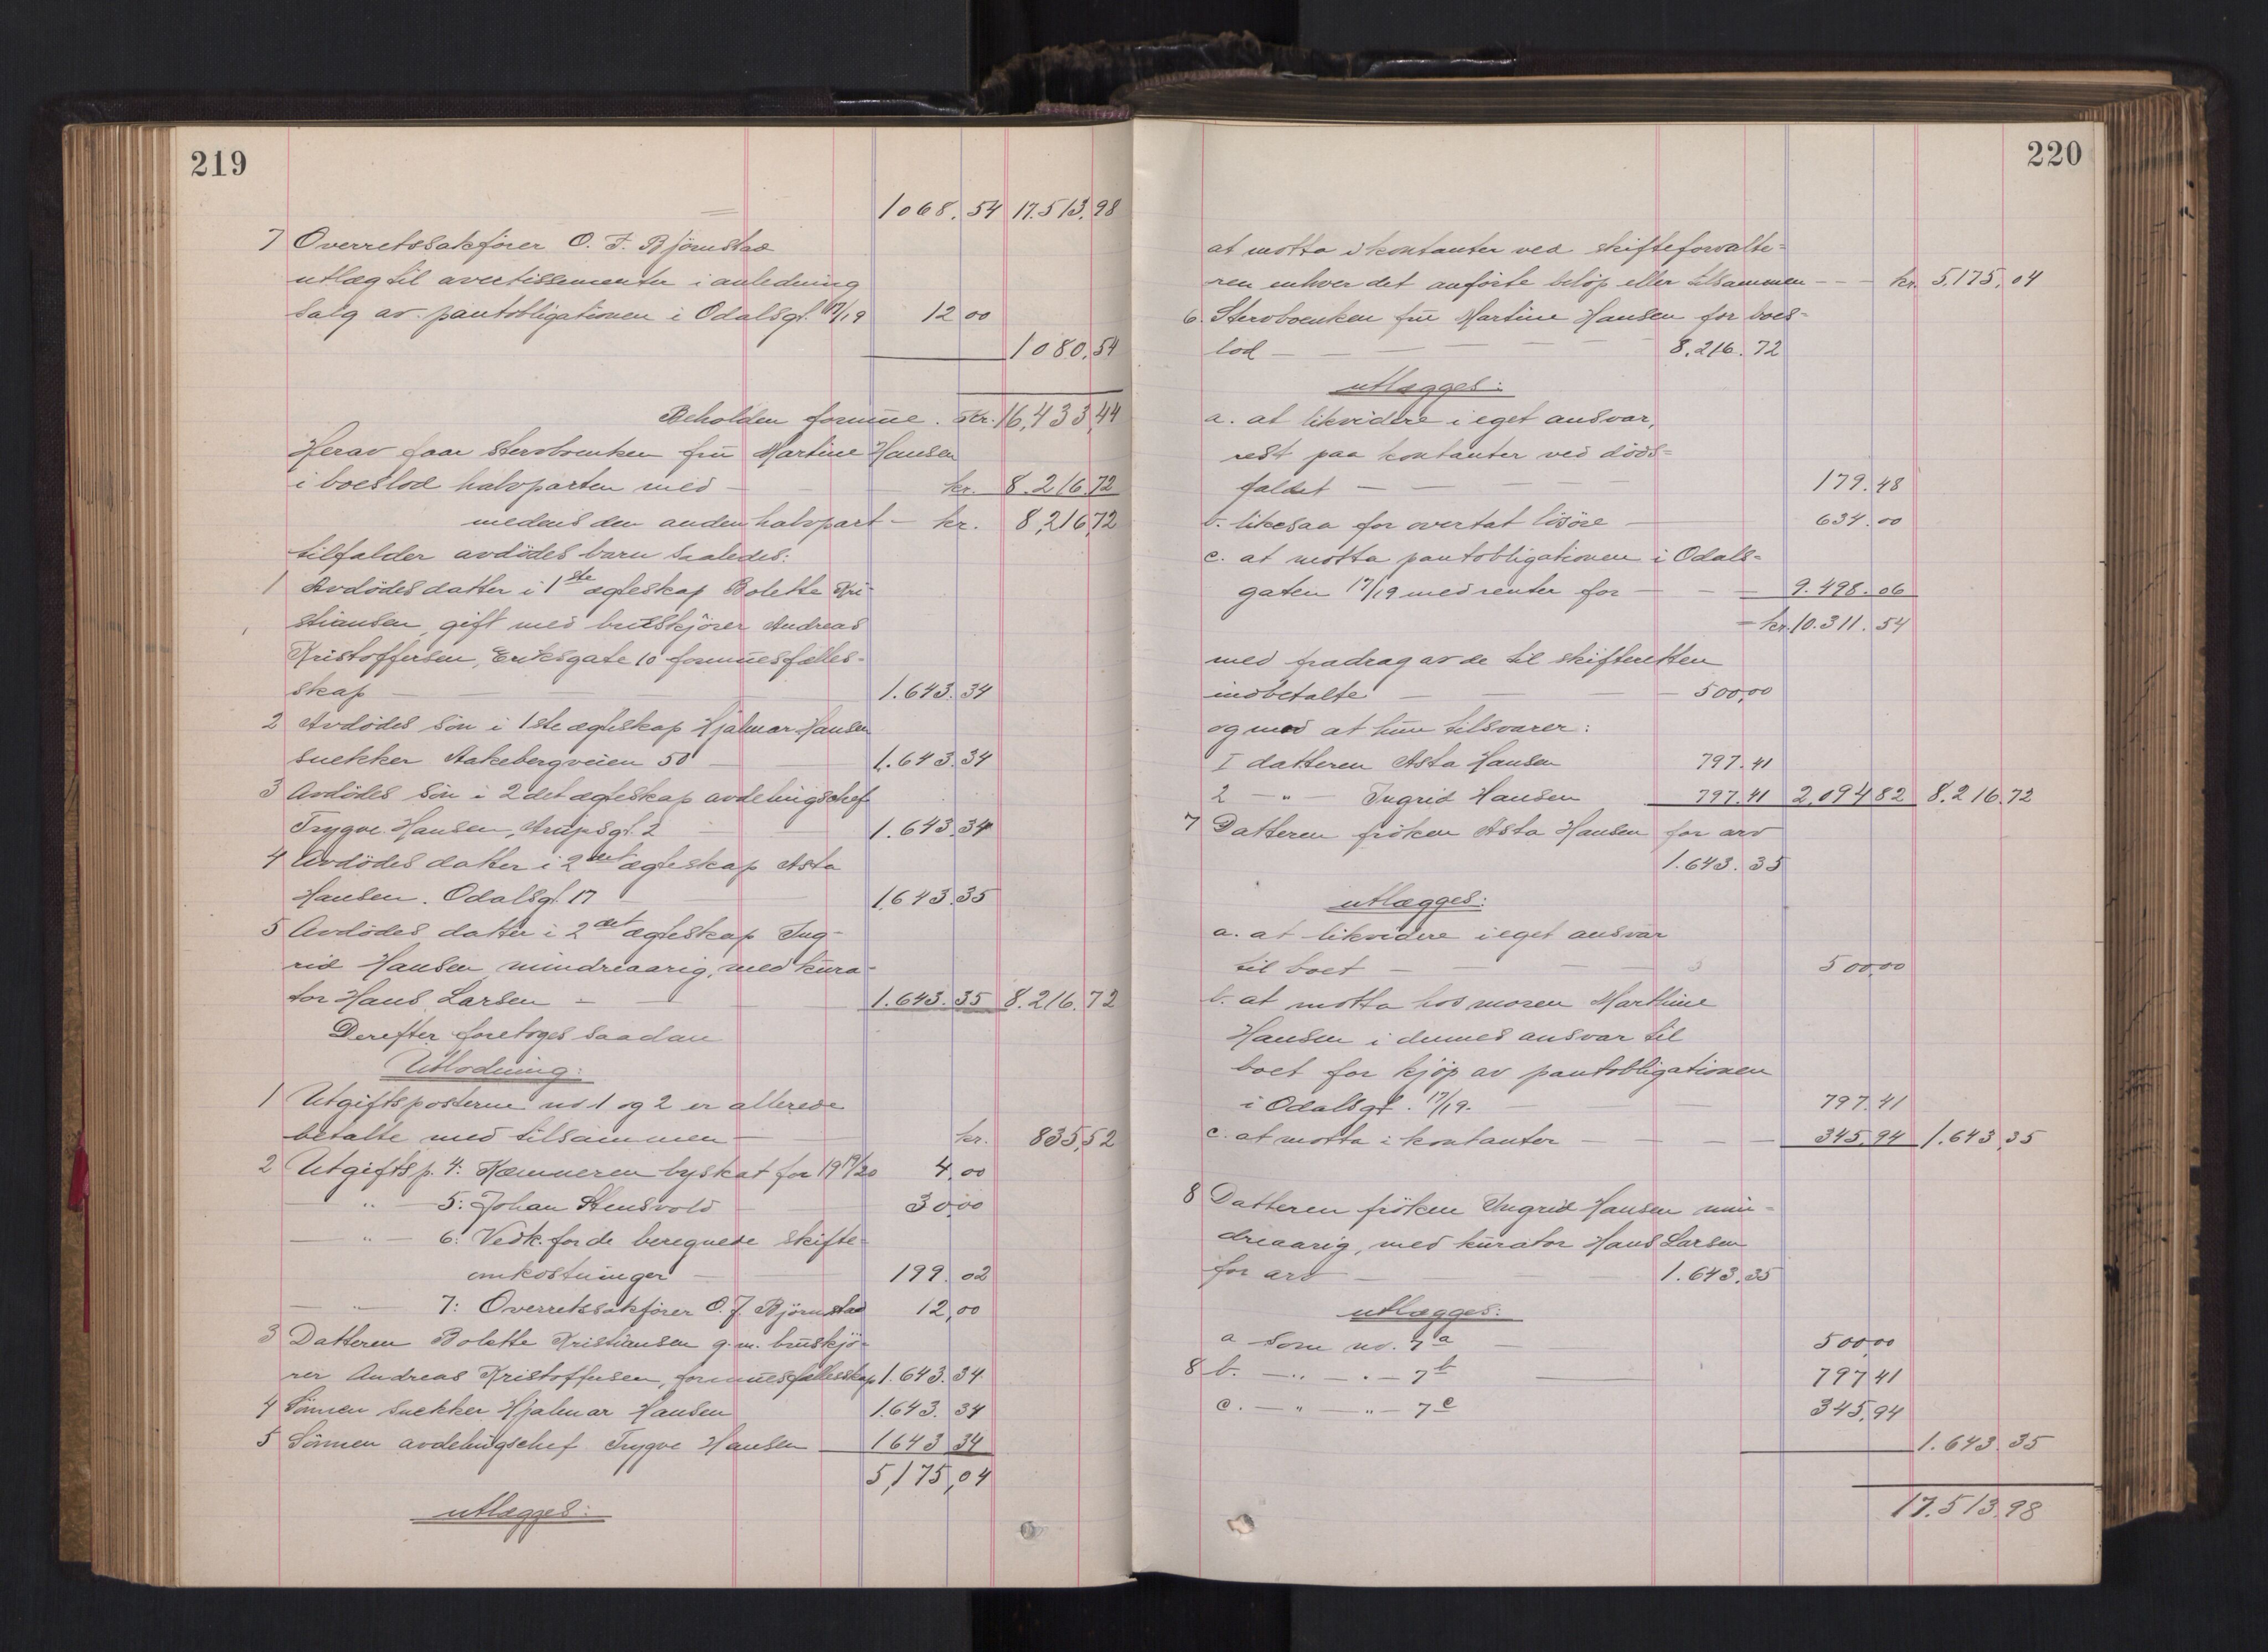 219
1068.54 17.513.98
7 Overretssakfører O. F. Bjørnstad
utlæg til avertissementer i anledning
salg av pantobligationen i Odalsgt. 17/19 12 00
1080,54
Beholden formue . Kr. 16,433,44
Herav faar stervboenken frü Martine Hansen
i boeslod halvparten med - kr. 8.216.72
medens den anden halvpart - kr. 8,216,72
tilfalder avdödes barn saaledes:
1 Avdödes datter i 1ste ægteskap Bolette Kri-
stiansen, gift med bruskjörer Andreas
Kristoffersen, Eriksgate 10 formüesfælles-
skap — 1.643.34
2 Avdödes sön i 1ste ægteskap Hjalmar Hansen
snekker Aakebergveien 50 — 1.643.34
3 Avdödes sön i 2det ægteskap avdelingschef
Trygve Hansen, Arupsgt. 2 — 1.643.34
4 Avdödes datter i 2det ægteskap Asta
Hansen. Odalsgt. 17 — 1643.35
5 Avdödes datter i 2det ægteskap Ing-
rid Hansen mindreaarig, med küra-
tor Hans Larsen — 1.643.35 8.216.72
Derefter foretoges saadan
Utlodning:
1 Utgiftsposterne no 1 og 2 er allerede
betalte med tilsammen — kr. 835,52
2 Utgifts p. 4: Kæmneren byskat for 1919/20 4,00
— " — 5: Johan Stensvold — 30,00
— " — 6: Vedk. for de beregnede skifte-
omkostninger — 199.02
— " — 7: Overretssakfører O. F. Bjørnstad 12,00
3 Datteren Bolette Kristiansen g. m. brüskjö-
rer Andreas Kristoffersen, formüesfællesskap 1.643.34
4 Sönnen snekker Hjalmar Hansen 1.643.34
5 Sönnen avdelingschef Trygve Hansen — 1643 34
5,175,04
utlægges:
220
at motta i kontanter ved skifteforvalte-
ren enhver det anförte belöp eller tilsammen - - - kr. 5,175,04
6. Stervboenken frü Martine Hansen for boes-
lod — 8.216.72
utlægges:
a. at likvidere i eget ansvar,
rest paa kontanter ved döds-
faldet — 179.48
b. likesaa for overtat lösöre — 634.00
c. at motta pantobligationen i Odals-
gaten 17/19 med renter for — 9.498.06
- kr. 10.311.54
med fradrag av de til skifteretten
indbetalte — 500,00
og med at hun tilsvarer:
I datteren Asta Hansen 797.41
2 — " — Ingrid Hansen 797.41 2,094 82 8.216.72
7 Datteren fröken Asta Hansen for arv
1.643.35
utlægges:
a. at likvidere i eget ansvar
til boet — 500,00
b. at motta hos moren Marthine
Hansen i dennes ansvar til
boet for kjöp av pantobligationen
i Odalsgt. 17/19. — 797.41
c. at motta i kontanter — 345,94 1.643,35
8 Datteren fröken Ingrid Hansen min-
dreaarig, med kürator Hans Larsen
for arv — 1.643.35
utlægges:
a som no. 7a — 500,00
8 b. — " — " — 7b — 797 41
c. — " — " — 7c 345,94
1.643.35
17.513.98